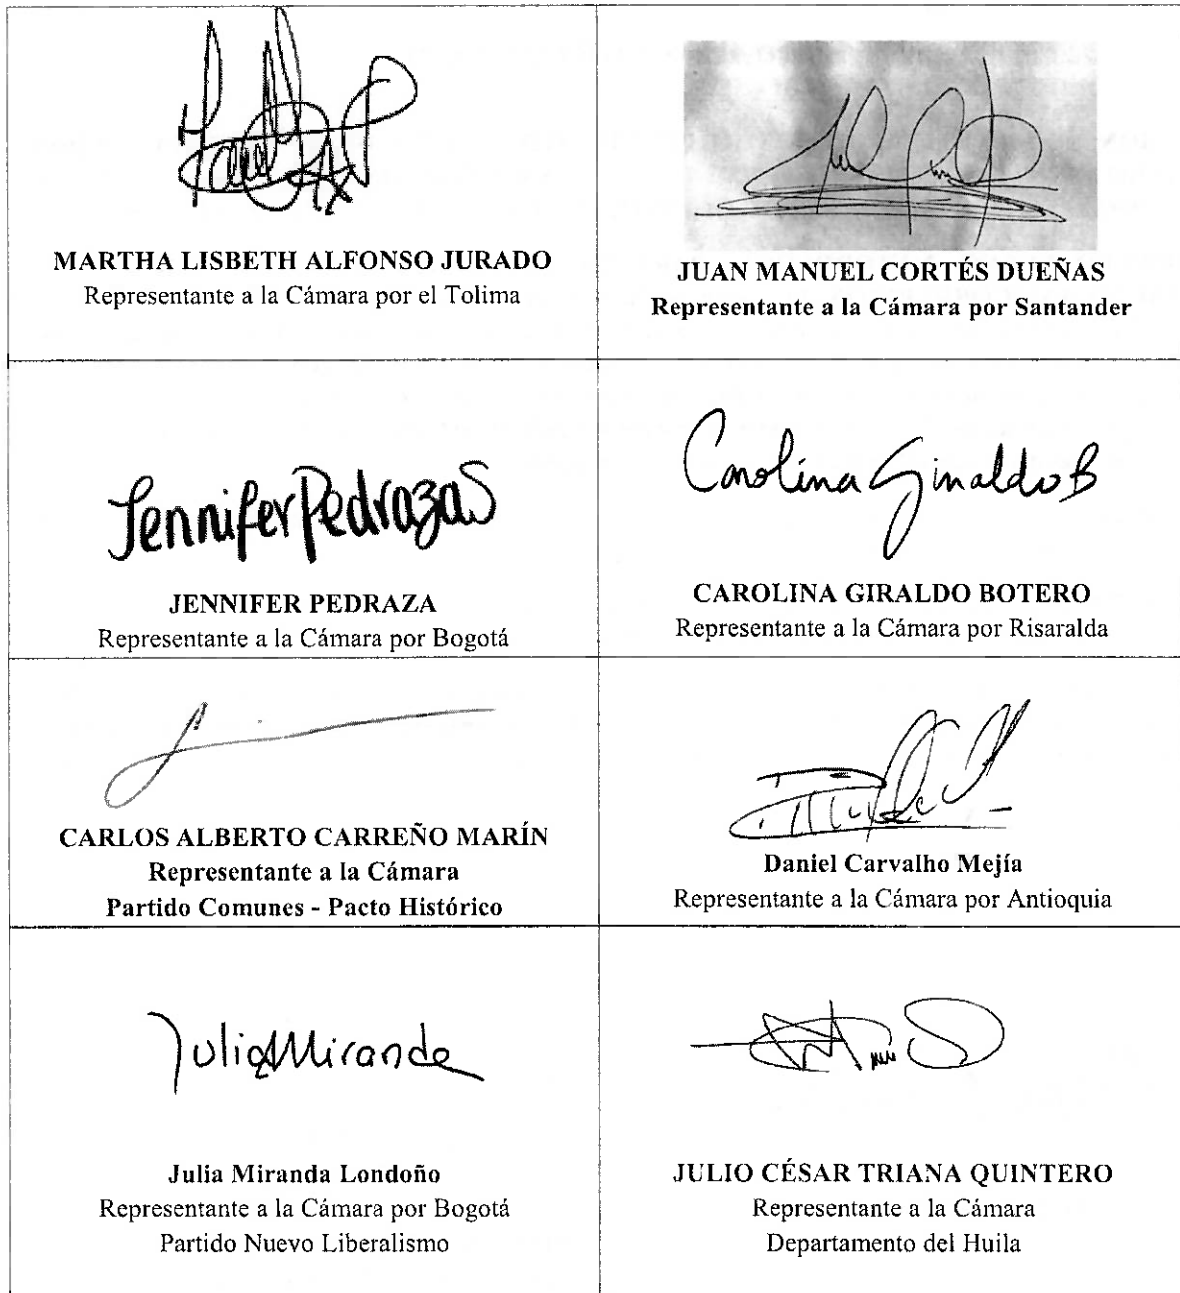 MARTHA LISBETH ALFONSO JURADO
Representante a la Cámara por el Tolima
JUAN MANUEL CORTÉS DUEÑAS
Representante a la Cámara por Santander
Jennifer Pedraza S
JENNIFER PEDRAZA
Representante a la Cámara por Bogotá
Carolina Giraldo B
CAROLINA GIRALDO BOTERO
Representante a la Cámara por Risaralda
CARLOS ALBERTO CARREÑO MARÍN
Representante a la Cámara
Partido Comunes - Pacto Histórico
Daniel Carvalho Mejía
Representante a la Cámara por Antioquia
Julia Miranda
Julia Miranda Londoño
Representante a la Cámara por Bogotá
Partido Nuevo Liberalismo
JULIO CÉSAR TRIANA QUINTERO
Representante a la Cámara
Departamento del Huila